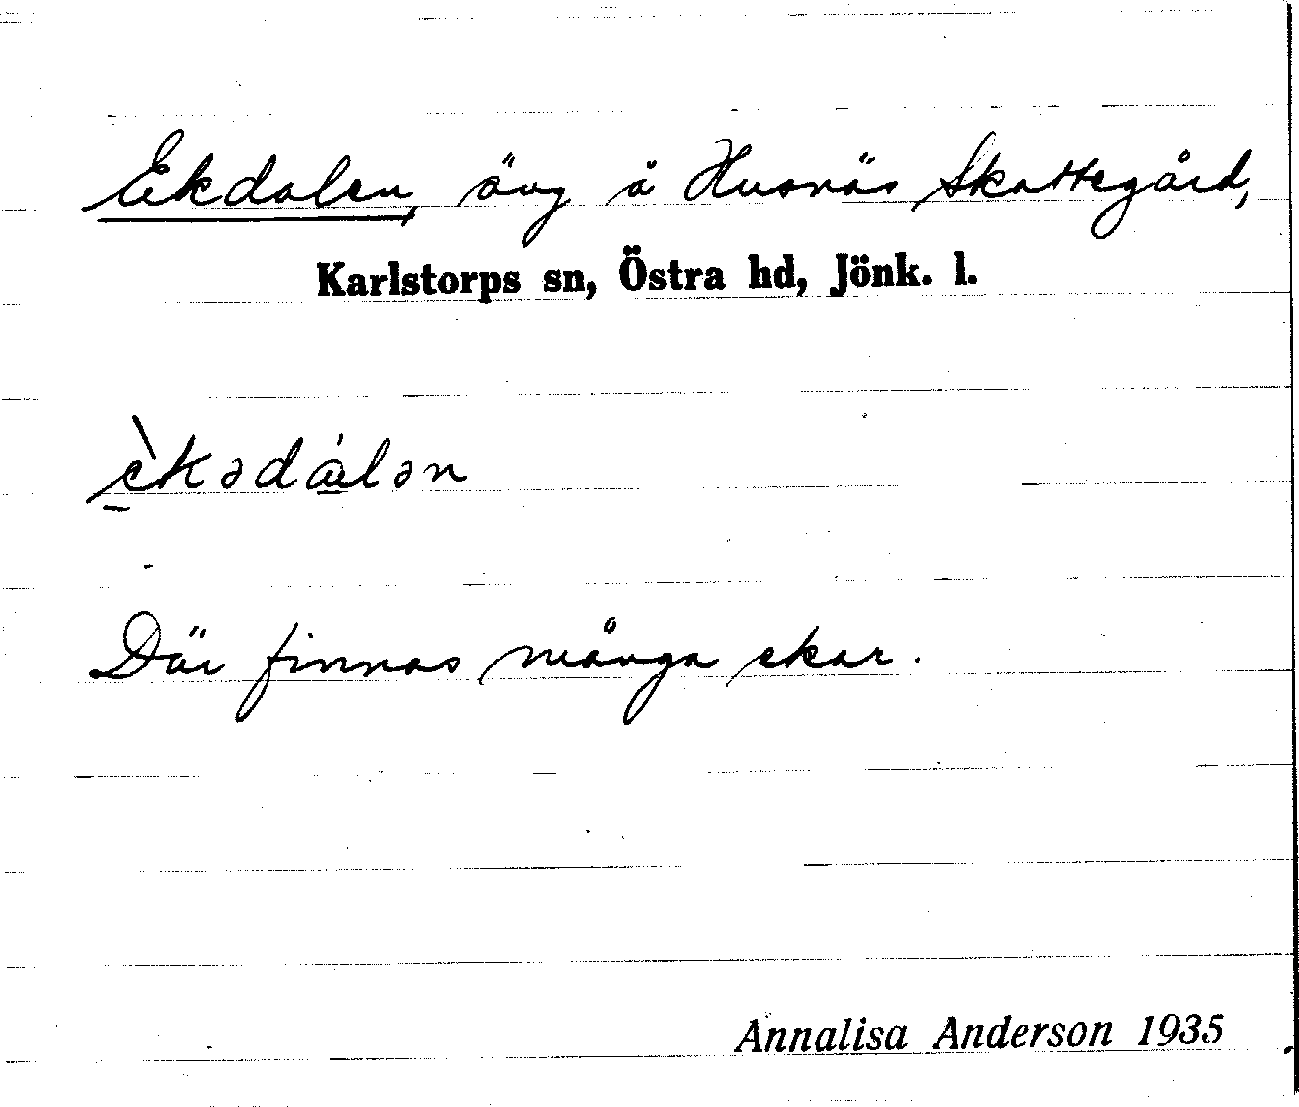 Ekdalen, äng å Husnäs Skattegård,
Karlstorps sn, Östra hd, Jönk. l.
èkədálən
Där finnas många ekar.
Annalisa Anderson 1935